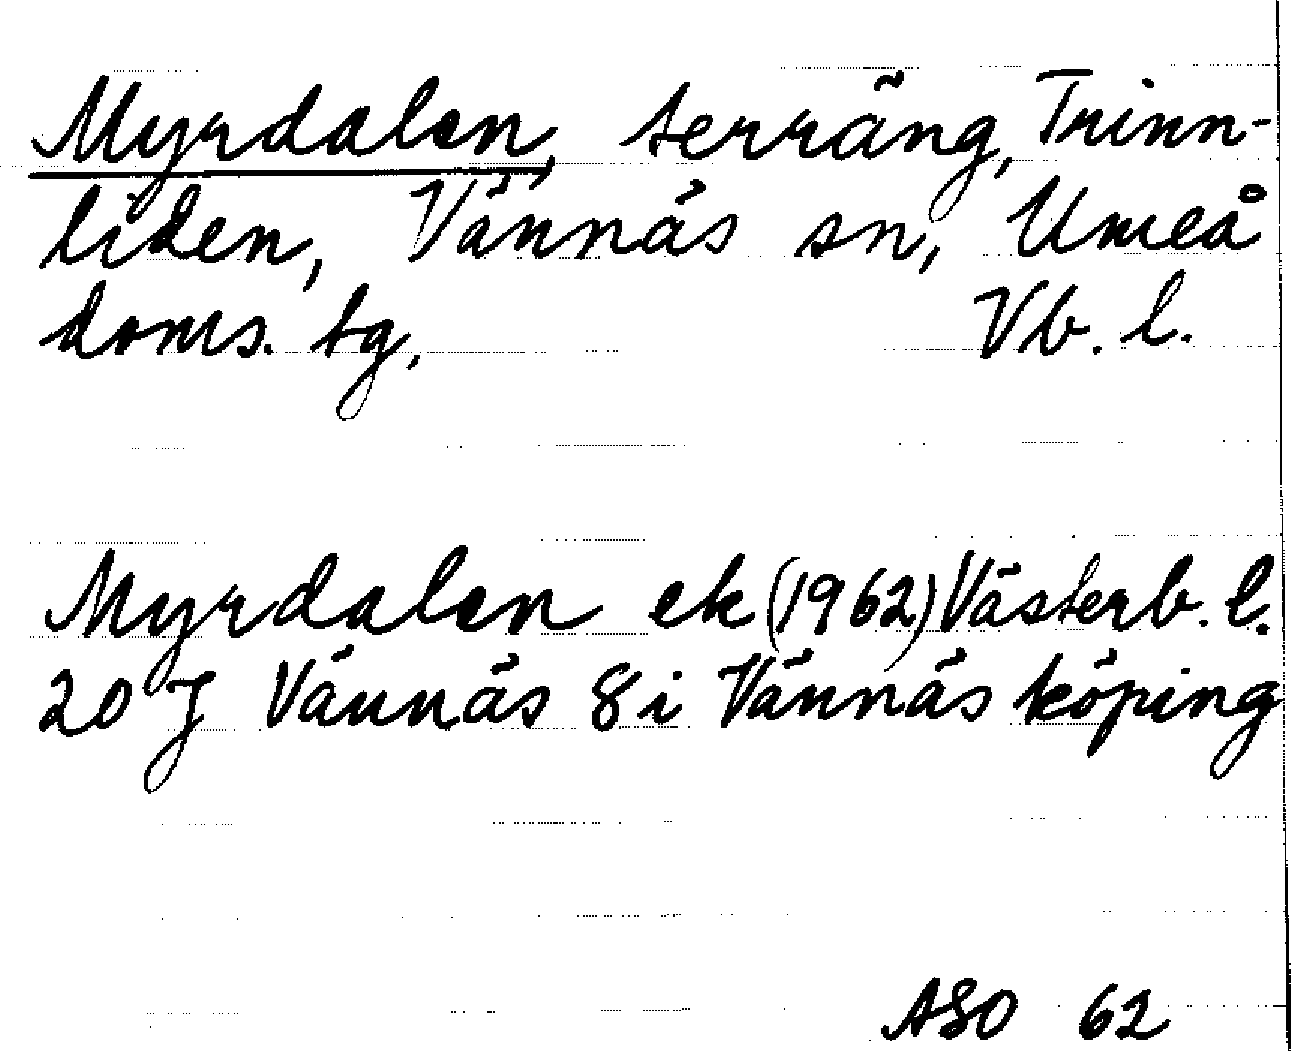 Myrdalen, terräng, Trinn-
liden, Vännäs sn, Umeå
doms. tg, Vb. l.
Myrdalen ek (1962) Västerb. l.
20 J Vännäs 8 i Vännäs köping
ASO 62